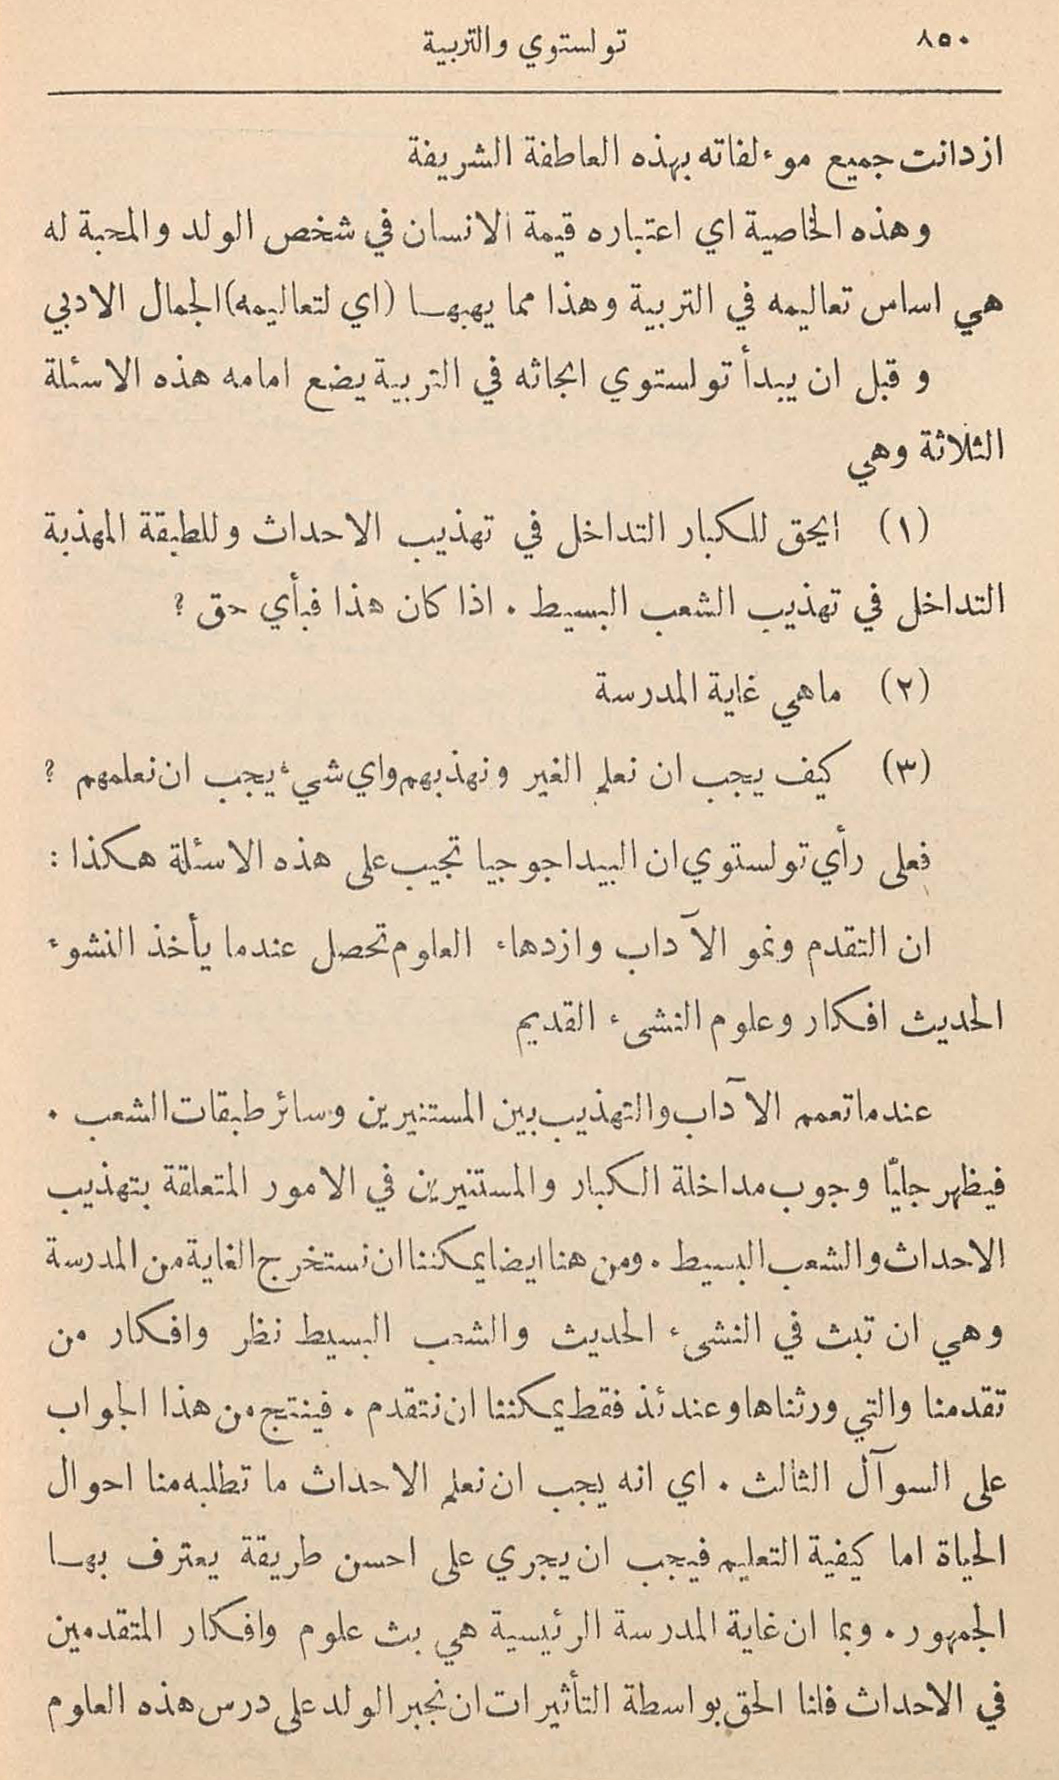 ٨٥٠
تولستوي والتربية
ازدانت جميع موءلفاته بهذه العاطفة الشريفة
وهذه الخاصية اي اعتباره قيمة الانسان في شخص الولد والمحبة له
هي اساس تعاليمه في التربية وهذا مما يهبهـا (اي لتعاليمه) الجمال الادبي
وقبل ان يبدأ تولستوي ابحاثه في التربية يضع امامه هذه الاسئلة
الثلاثة وهي
(١) ايحق للكبار التداخل في تهذيب الاحداث وللطبقة المهذبة
التداخل في تهذيب الشعب البسيط . اذا كان هذا فبأي حق ؟
(٢) ماهي غاية المدرسة
(٣) كيف يجب ان نعلم الغير ونهذبهم واي شيء يجب ان نعلمهم ؟
فعلى رأي تولستوي ان البيداجوجيا تجيب على هذه الاسئلة هكذا :
ان التقدم ونمو الآداب وازدهاء العلوم تحصل عندما يأخذ النشوء
الحديث افكار وعلوم النشىء القديم
عندما تعمم الآداب والتهذيب بين المستنيرين وسائر طبقات الشعب .
فيظهر جليًّا وجوب مداخلة الكبار والمستنيرين في الامور المتعلقة بتهذيب
الاحداث والشعب البسيط . ومن هنا ايضا يمكننا ان نستخرج الغاية من المدرسة
وهي ان تبث في النشىء الحديث والشعب البسيط نظر وافكار من
تقدمنا والتي ورثناها وعندئذ فقط يمكننا ان نتقدم . فينتج من هذا الجواب
على السوآل الثالث . اي انه يجب ان نعلم الاحداث ما تطلبه منا احوال
الحياة اما كيفية التعليم فيجب ان يجري على احسن طريقة يعترف بهـا
الجمهور . وبما ان غاية المدرسة الرئيسية هي بث علوم وافكار المتقدمين
في الاحداث فلنا الحق بواسطة التأثيرات ان نجبر الولد على درس هذه العلوم